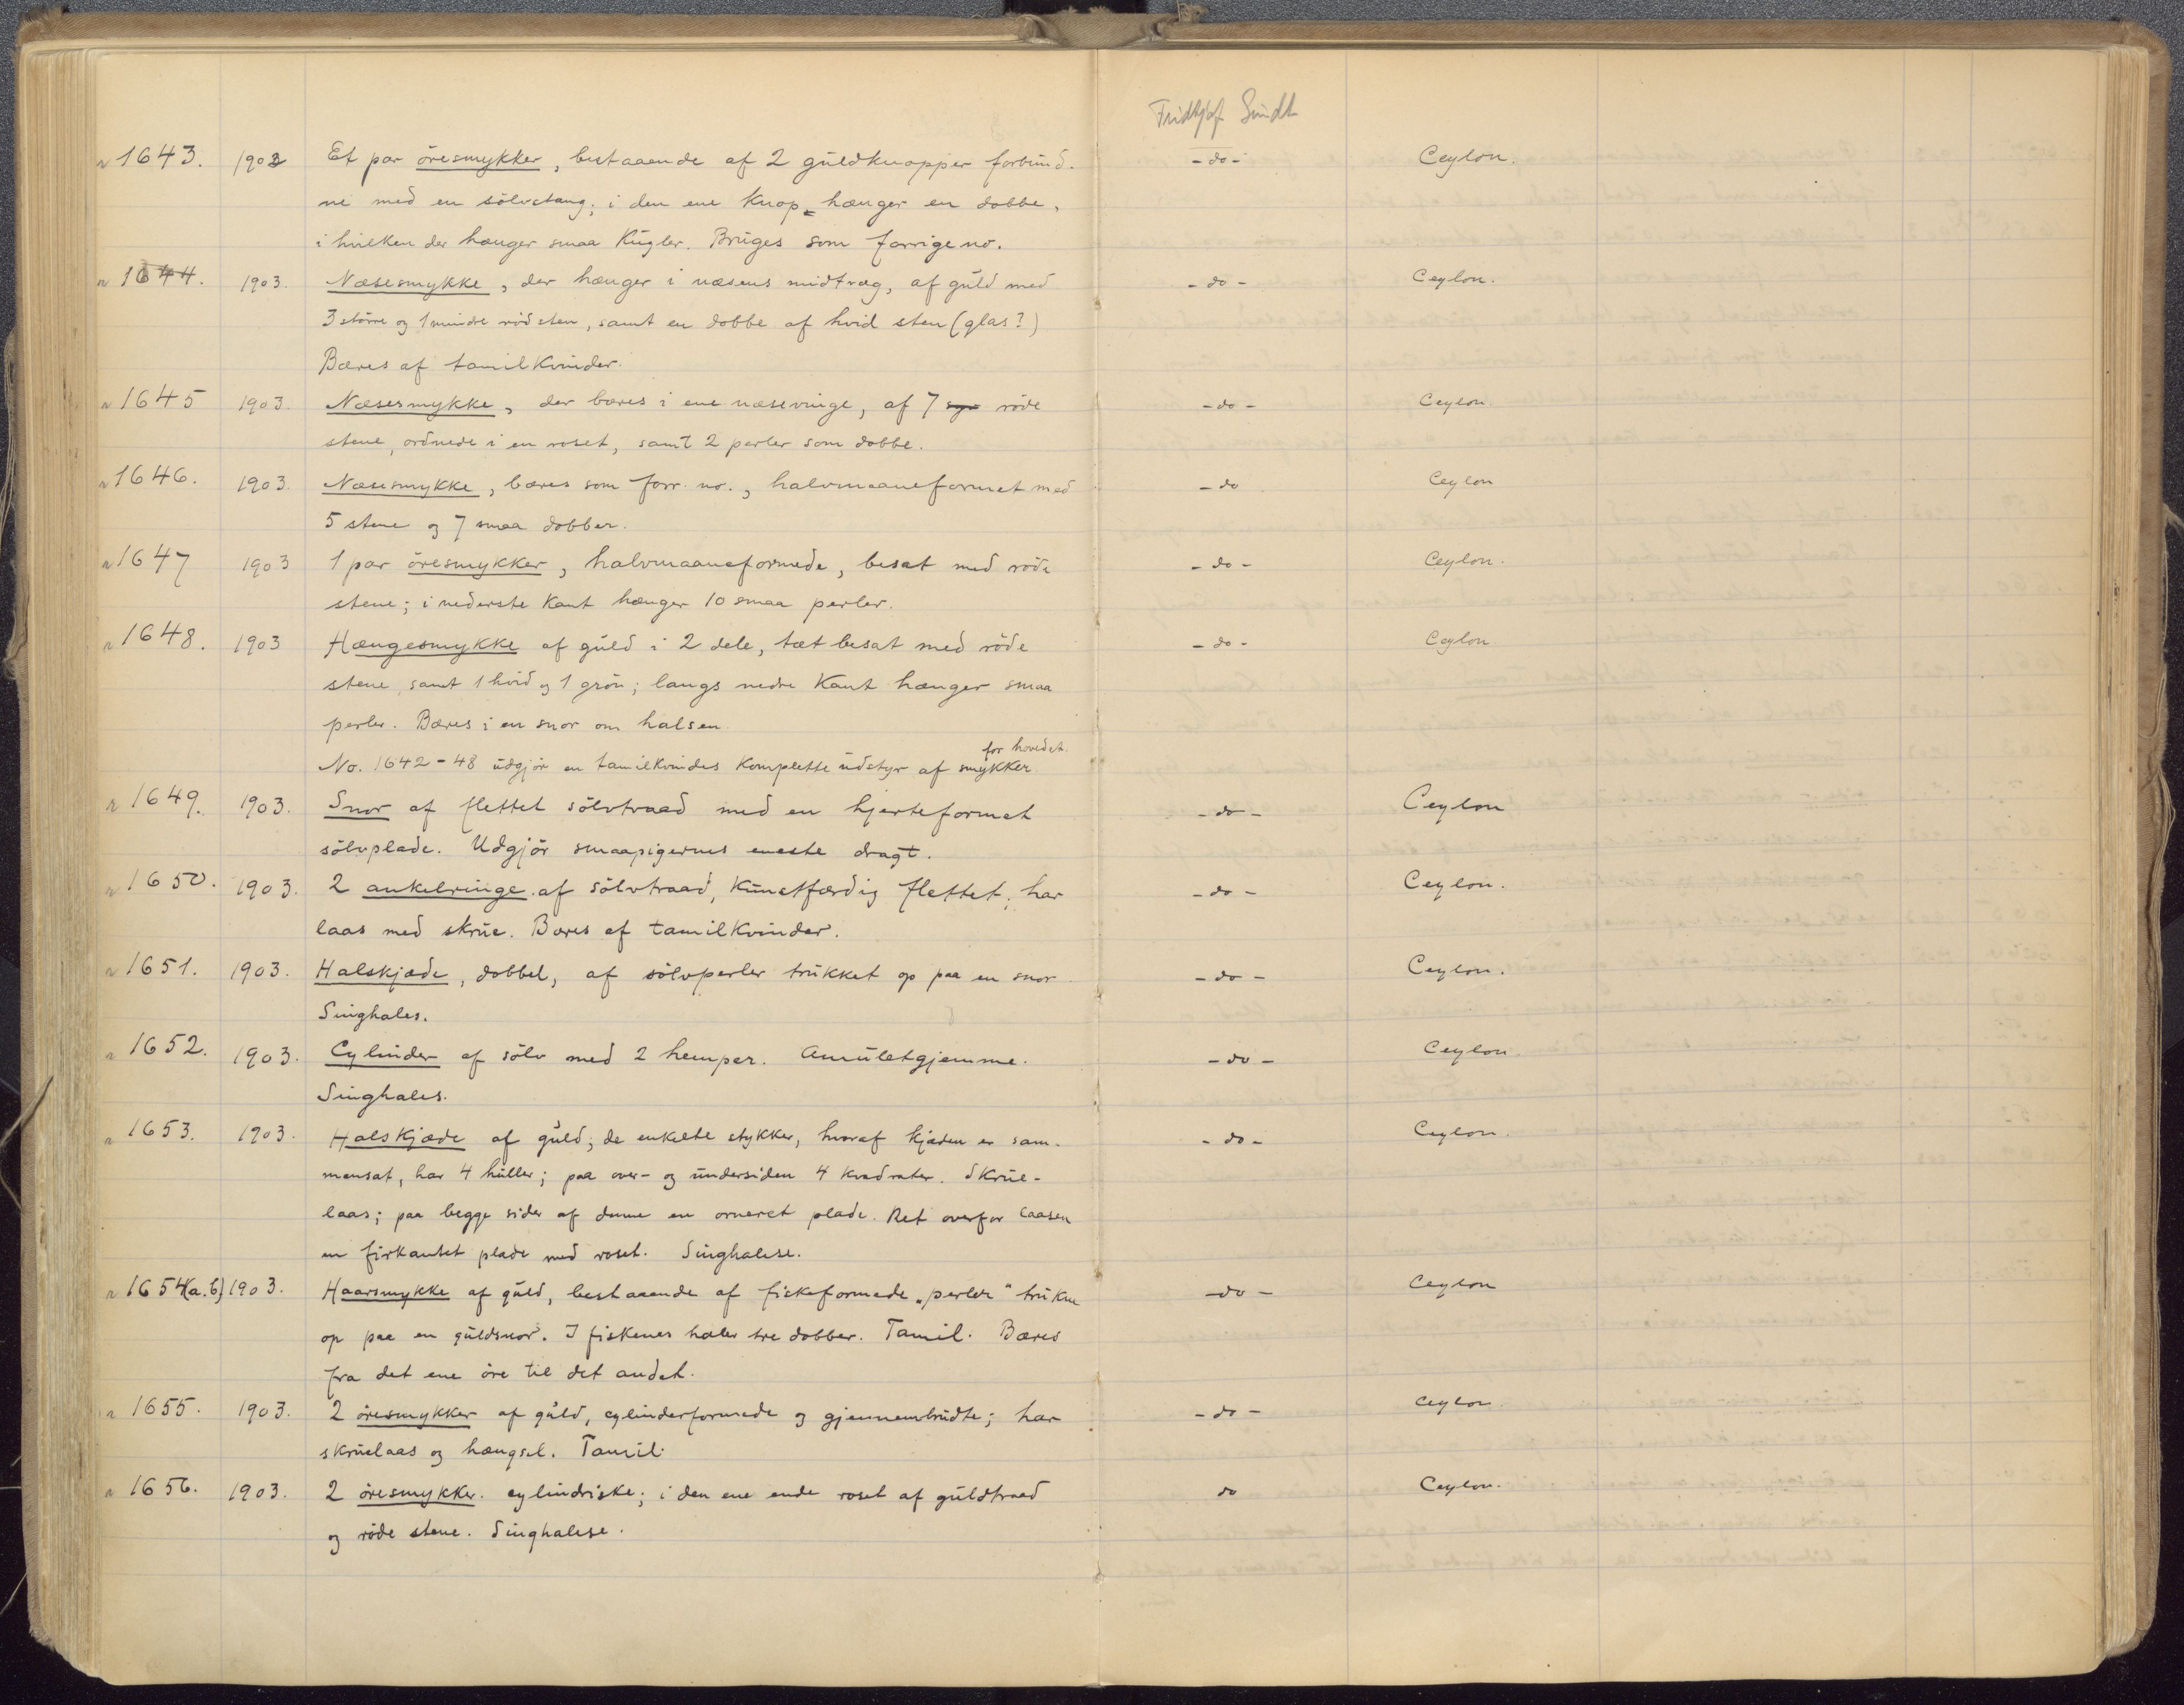 Fridtjof Sundt
n 1643. 1903 Et par öresmykker, bestaaende af 2 guldknopper forbund- - do - Ceylon.
ne med en sölvstang; i den ene knop hænger en dobbe,
i hvilken der hænger smaa kugler. Bruges som forrige no.
n 1644. 1903. Næsesmykke, der hænger i næsens midtvæg, af guld med - do - Ceylon.
3 större og 1 mindre röd sten, samt en dobbe af hvid sten (glas?)
Bæres af tamilkvinder.
n 1645 1903. Næsesmykke, der bæres i ene næsevinge, af 7 röde - do - Ceylon.
stene, ordnede i en roset, samt 2 perler som dobbe.
n 1646. 1903. Næsesmykke, bæres som forr. no., halvmaaneformet med - do Ceylon
5 stene og 7 smaa dobber.
n 1647 1903 1 par öresmykker, halvmaaneformede, besat med röde - do - Ceylon.
stene; i nederste kant hænger 10 smaa perler.
n 1648. 1903 Hængesmykke af guld i 2 dele, tæt besat med röde - do - Ceylon.
stene, samt 1 hvid og 1 grön; langs nedre kant hænger smaa
perler. Bæres i en snor om halsen.
for hovedet.
No. 1642 - 48 udgjör en tamilkvindes komplette udstyr af smykker
n 1649. 1903. Snor af flettet sölvtraad med en hjerteformet - do - Ceylon
sölvplade. Udgjör smaapigernes eneste dragt.
n 1650. 1903. 2 ankelringe af sölvtraad, kunstfærdig flettet; har - do - Ceylon.
laas med skrue. Bæres af tamilkvinder.
n 1651. 1903. Halskjæde, dobbel, af sölvperler trukket op paa en snor - do - Ceylon.
Singhales.
n 1652. 1903. Cylinder af sölv med 2 hemper. Amuletgjemme. - do - Ceylon.
Singhales.
n 1653. 1903. Halskjæde af guld; de enkelte stykker, hvoraf kjæden er sam- - do - Ceylon.
mensat, har 4 huller; paa over- og undersiden 4 kvadrater. Skrue-
laas; paa begge sider af denne en orneret plade. Ret overfor laasen
en firkantet plade med roset. Singhalese.
n 1654(a.b) 1903. Haarsmykke af guld, bestaaende af fiskeformede „perler“ trukne - do - Ceylon
op paa en guldsnor. I fiskenes haler tre dobber. Tamil. Bæres
fra det ene öre til det andet.
n 1655. 1903. 2 öresmykker af guld, cylinderformede og gjennembrudte; har - do - Ceylon.
skruelaas og hængsel. Tamil.
n 1656. 1903. 2 öresmykker. cylindriske; i den ene ende roset af guldtraad do Ceylon.
og röde stene. Singhalese.